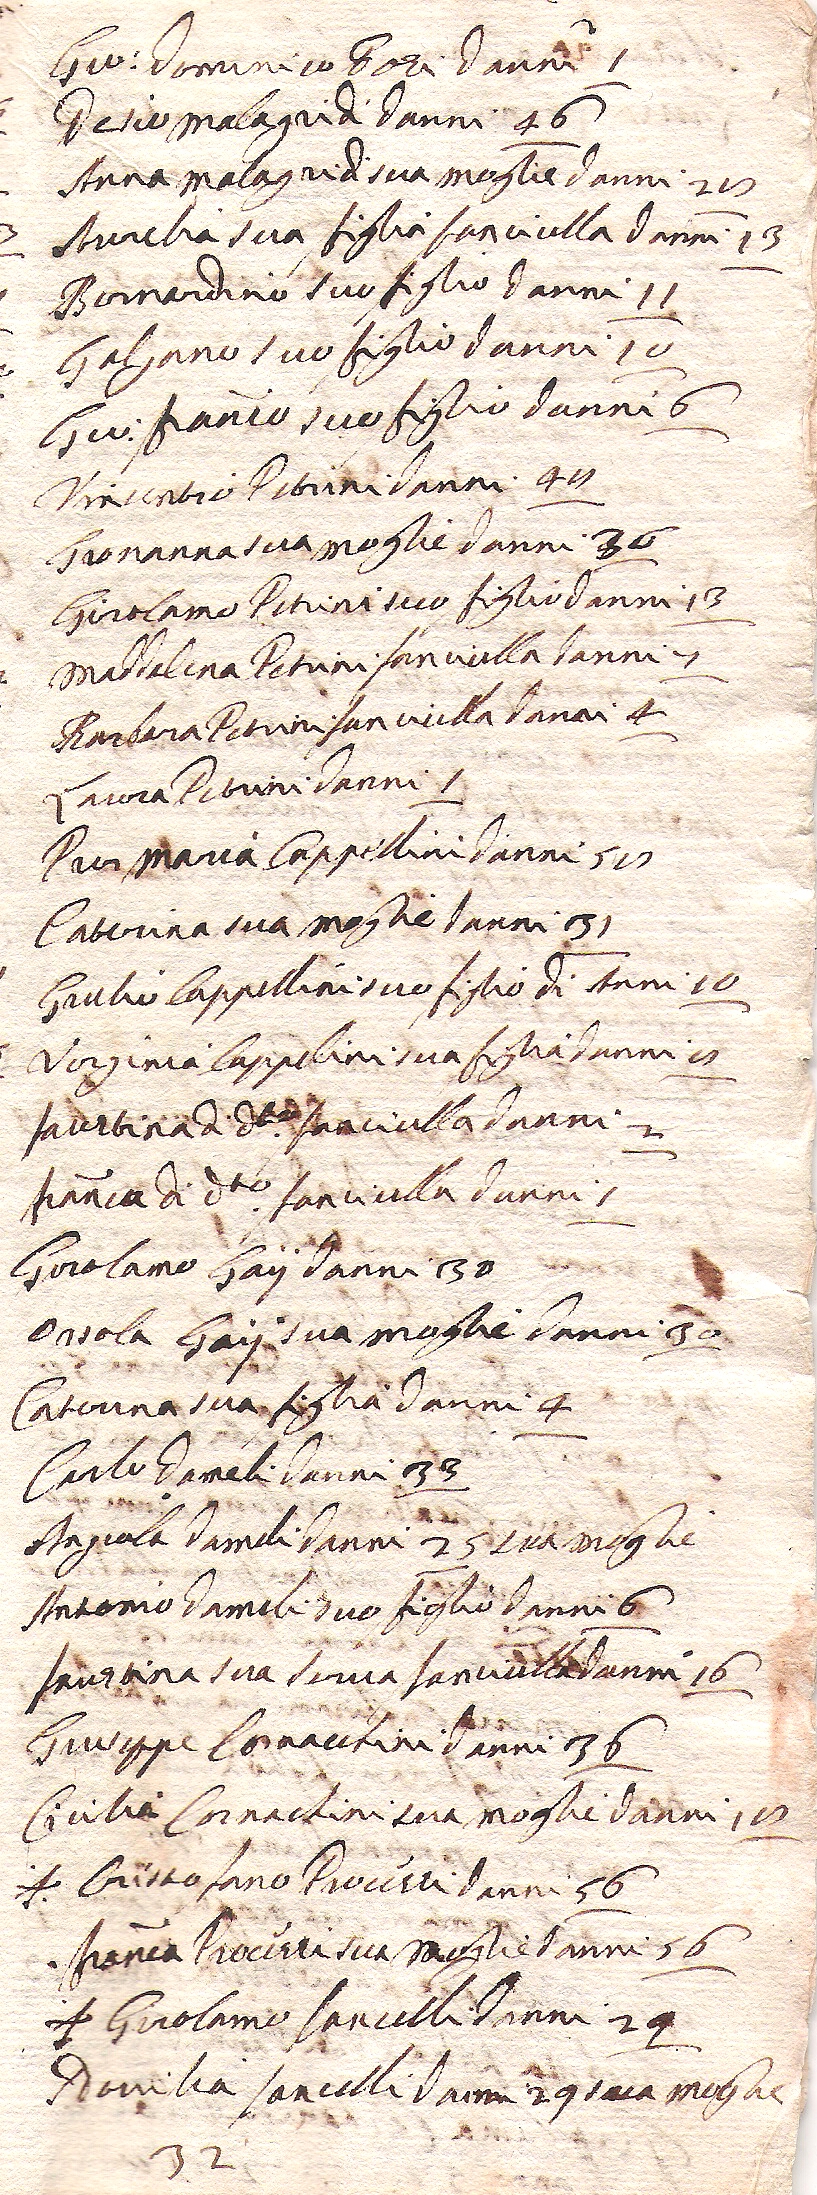 Gio: Domenico Gori d'anni 1
Desio Malagridi d'anni 46
Anna Malagridi sua moglie d'anni
Aurelia sua figlia fanciulla d'anni 13
Bernardino suo figlio d'anni 11
Galgano suo figlio d'anni 10
Gio: Franco suo figlio d'anni 6
Vincentio Petrini d'anni
Giovanna sua moglie d'anni 36
Girolamo Petrini suo figlio d'anni 13
Maddalena Petrini fanciulla d'anni
Barbara Petrini fanciulla d'anni 4
Laura Petrini d'anni 1
Pier Maria Cappellini d'anni
Caterina sua moglie d'anni 31
Giulio Cappellini suo figlio di Anni 10
Verginia Cappellini sua figlia d'anni
Faustina di dto fanciulla d'anni 2
Franca di dto fanciulla d'anni 1
Girolamo Gaij d'anni 30
Orsola Gaij sua moglie d'anni 30
Caterina sua figlia d'anni 4
Carlo Danieli d'anni 33
Angiola Danieli d'anni 25 sua moglie
Antonio Danieli suo figlio d'anni 6
Faustina sua serva fanciulla d'anni 16
Giuseppe Cornacchini d'anni 36
Cicilia Cornachini sua moglie d'anni
Cristofano d'anni 56
Franca sua moglie d'anni 56
Girolamo Fancelli d'anni 29
Fancelli d'anni 29 sua moglie
32